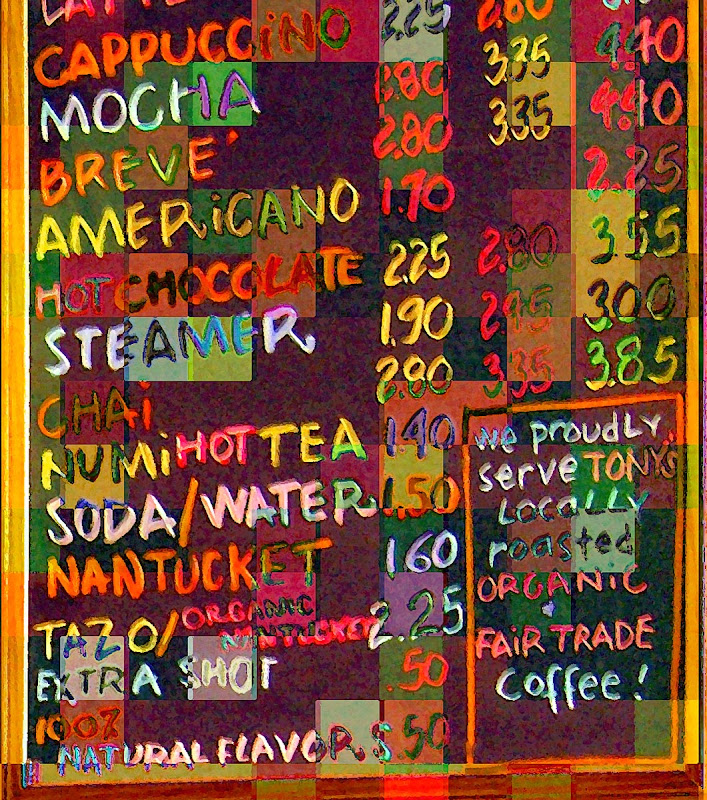 LATTE
CAPPUCCINO 2.25 2.80
MOCHA 2.80 3.35 4.40
BREVE' 2.80 3.35 4.40
AMERICANO 1.70 2.25
HOT CHOCOLATE 2.25 2.80 3.55
STEAMER 1.90 2.95 3.00
CHAI 2.80 3.35 3.85
NUMI HOT TEA 1.40
SODA/WATER 1.50
NANTUCKET 1.60
TAZO/ORGANIC NANTUCKET 2.25
EXTRA SHOT .50
100%
NATURAL FLAVORS .50
we proudly
serve TONY'S
LOCALLY
roasted
ORGANIC
FAIR TRADE
Coffee!